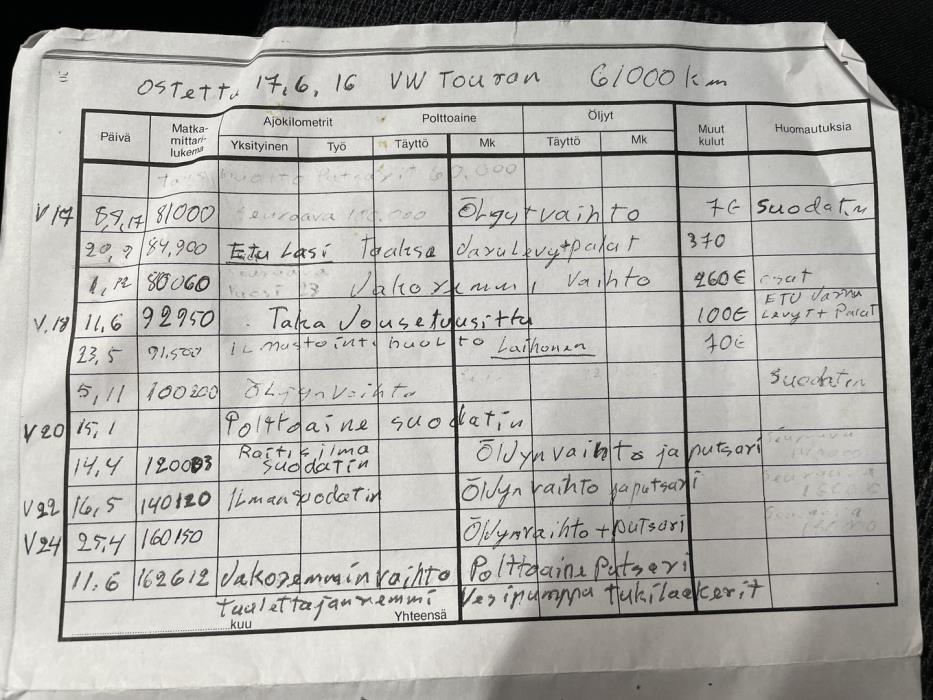 Ostettu 17,6,16 VW Touran 61000 km
Päivä Matka-mittari-lukema Ajokilometrit Polttoaine Öljyt Muut kulut Huomautuksia
Yksityinen Työ Täyttö Mk Täyttö Mk
Putsarit 60,000
V17 8,9,17 81000 Seuraava 100.000 Öljyt vaihto 7€ Suodatin
20,9 84,900 Etu Lasi Taakse Jarulevyt+palat 370
1,12 88060 Vuosi 23 Jakoremmi Vaihto 260€ osat
V,18 11,6 92950 Taka Jouset uusittu 100€ ETU Jarru Levyt+Palat
23,5 91,500 ilmastointi huolto Laihonen 70€
5,11 100200 Öljynvaihto Suodatin
V20 15,1 Polttoaine suodatin
14,4 120003 Raitis ilma suodatin Öljynvaihto ja putsari
V22 16,5 140120 Ilmansuodatin Öljyn vaihto ja putsari
V24 25,4 160150 Öljynvaihto + putsari
11.6 162612 Jakoremmin vaihto Polttoaine Putsari
tuulettajanremmi Vesipumppu tukilaakerit
kuu Yhteensä